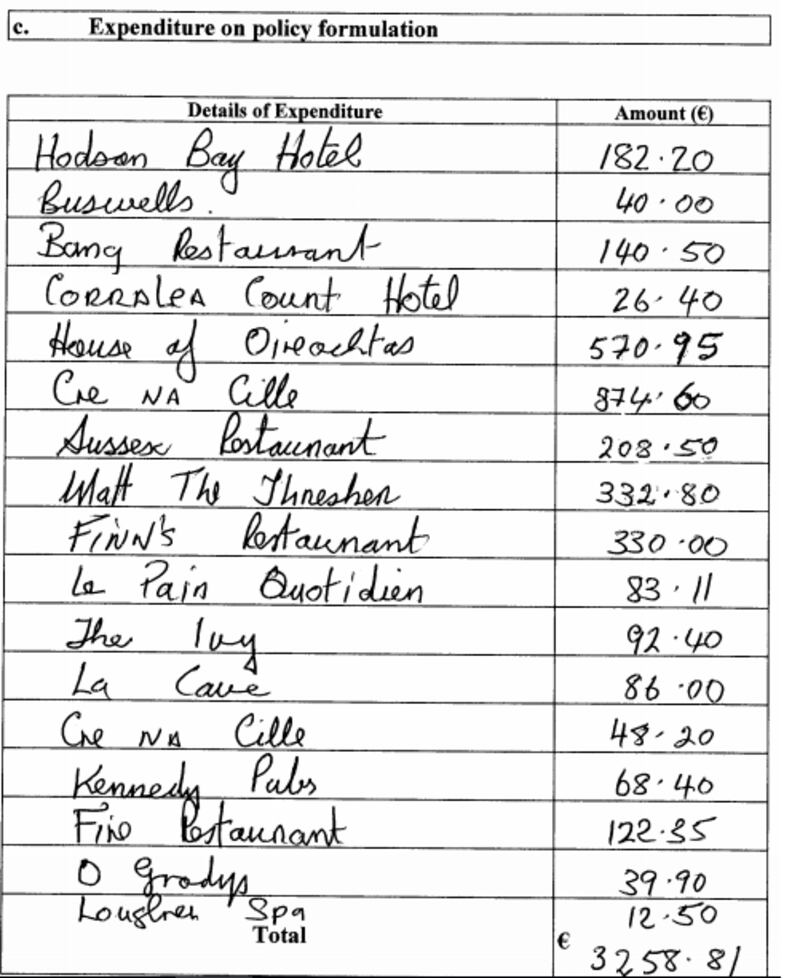 c. Expenditure on policy formulation
Details of Expenditure Amount (€)
Hodson Bay Hotel 182.20
Buswells. 40.00
Bang Restaurant 140.50
CORRALEA Count Hotel 26.40
House of Oireachtas 570.95
Cre NA Cille 874.60
Sussex Restaurant 208.50
Matt The Thresher 332.80
FINN's Restaurant 330.00
Le Pain Quotidien 83.11
The Ivy 92.40
La Cave 86.00
Cre NA Cille 48.20
Kennedy Pubs 68.40
Fire Restaurant 122.35
O Gradys 39.90
Spa 12.50
Total € 3258.81